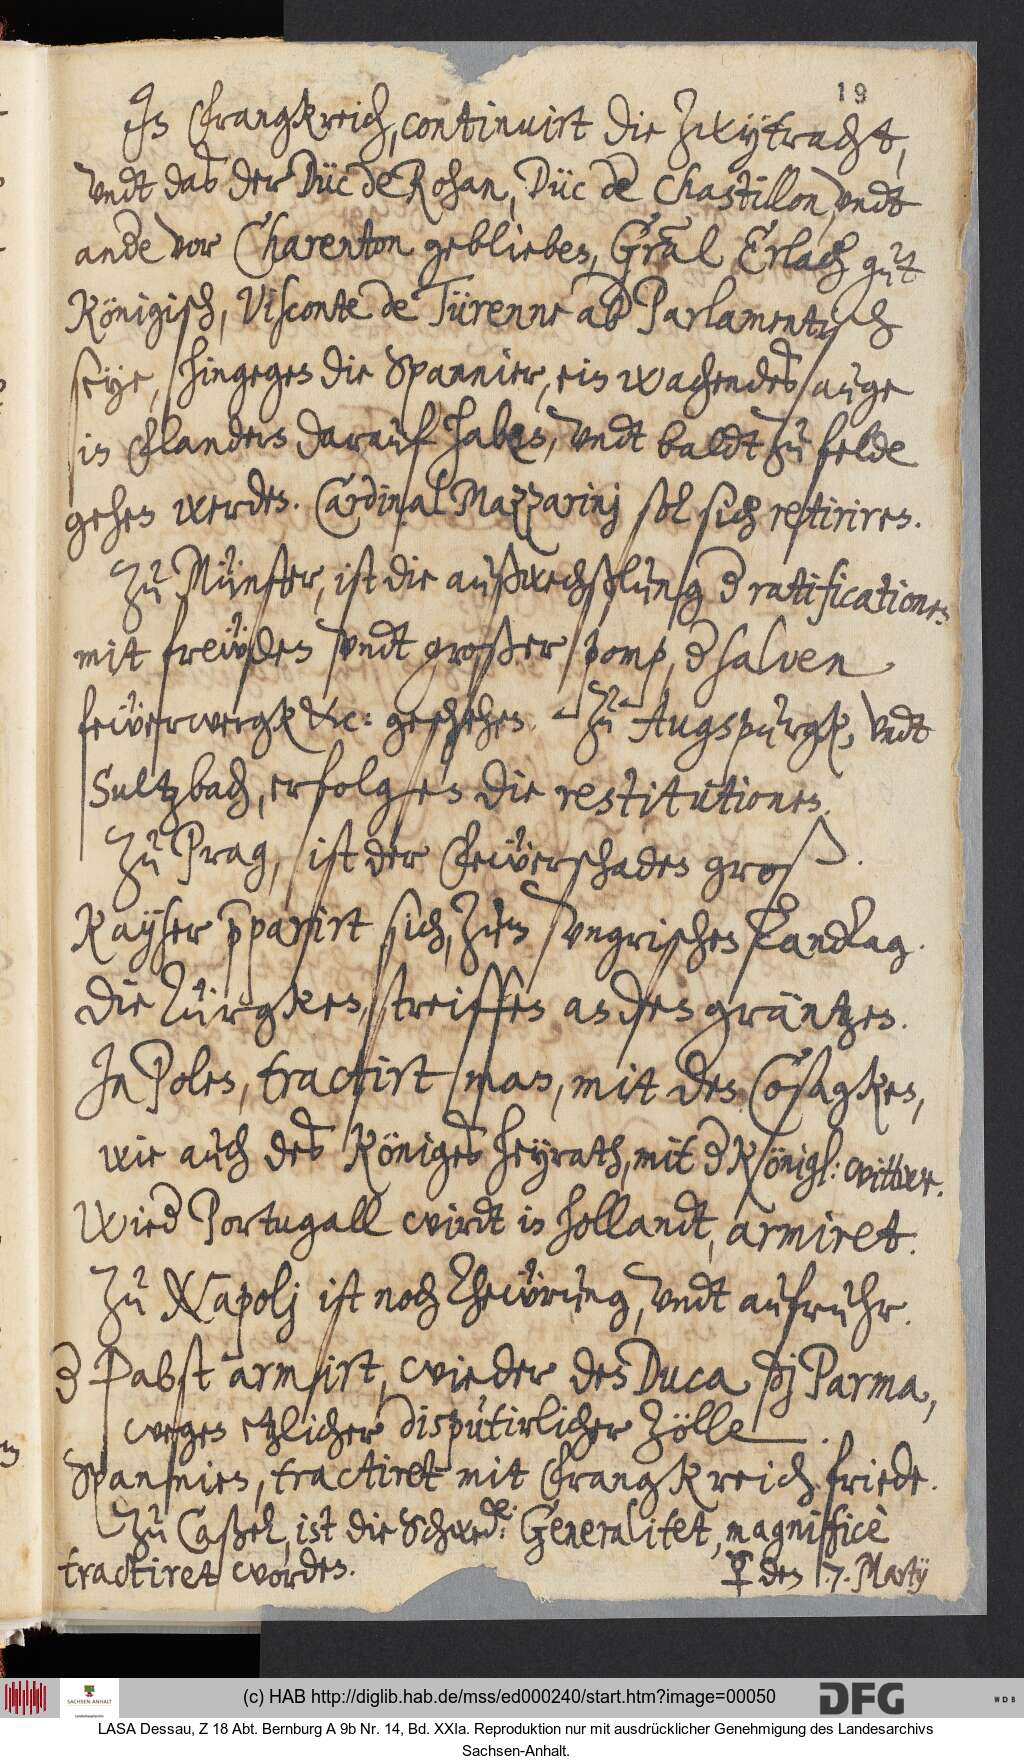 19
In Frangkreich, continuirt die Zwytracht,
undt das der Düc de Rohan, Düc de Chastillon, undt
ande vor Charenton geblieben, Gral Erlach gut
Königisch, Visconte de Türenne ab Parlamentisch
seye, hingegen die Spannier, ein wachendes auge
in Flandern darauf haben, undt baldt zu felde
gehen werden. Cardinal Mazzarinj sol sich retiriren.
Zu Münster, ist die außwechßlung d ratificationen
mit frewden undt großer pomp, d salven
fewerwergk &c: geschehen. Zu Augspurgk, undt
Sultzbach, erfolgen die restitutiones.
Zu Prag, ist der Fewerschaden groß.
Kayser pparirt sich, zum Ungrischen Landtag.
die Türgken, streiffen an den gräntzen.
In Polen, tractirt man, mit den Cosagken,
wie auch des Königes heyrath, mit d Königl: Wittwe.
Wied Portugall wirdt in hollandt, armiret.
Zu Napolj ist noch Thewrung, undt aufruhr.
d Pabst armirt, wieder den Duca dj Parma,
wegen etzlicher disputirlicher Zölle.
Spannien, tractiret mit Frangkreich friede.
Zu Caßel, ist die Schwed: Generalitet, magnificè
tractiret worden.
♀ den 7. Martij
(c) HAB http://diglib.hab.de/mss/ed000240/start.htm?image=00050
SACHSEN-ANHALT
DFG
WDB
LASA Dessau, Z 18 Abt. Bernburg A 9b Nr. 14, Bd. XXIa. Reproduktion nur mit ausdrücklicher Genehmigung des Landesarchivs
Sachsen-Anhalt.